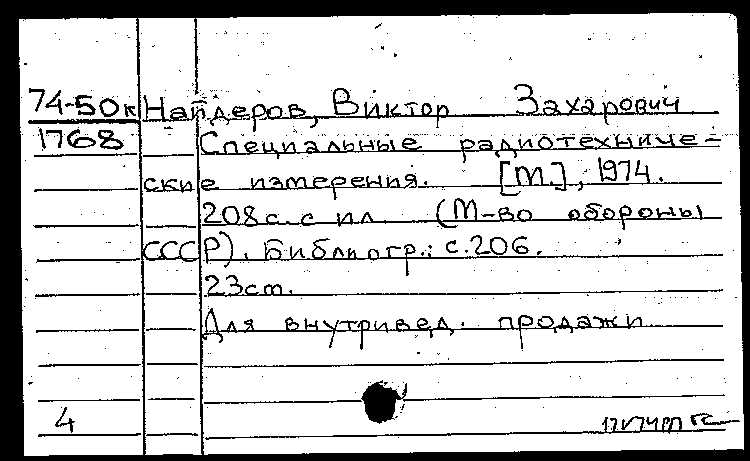 74-50к Найдеров, Виктор Захарович
1768 Специальные радиотехниче-
ские измерения. [М.], 1974.
208с. с ил. (М-во обороны
СССР). Библиогр.: с.206.
23cm.
Для внутривед. продажи
4